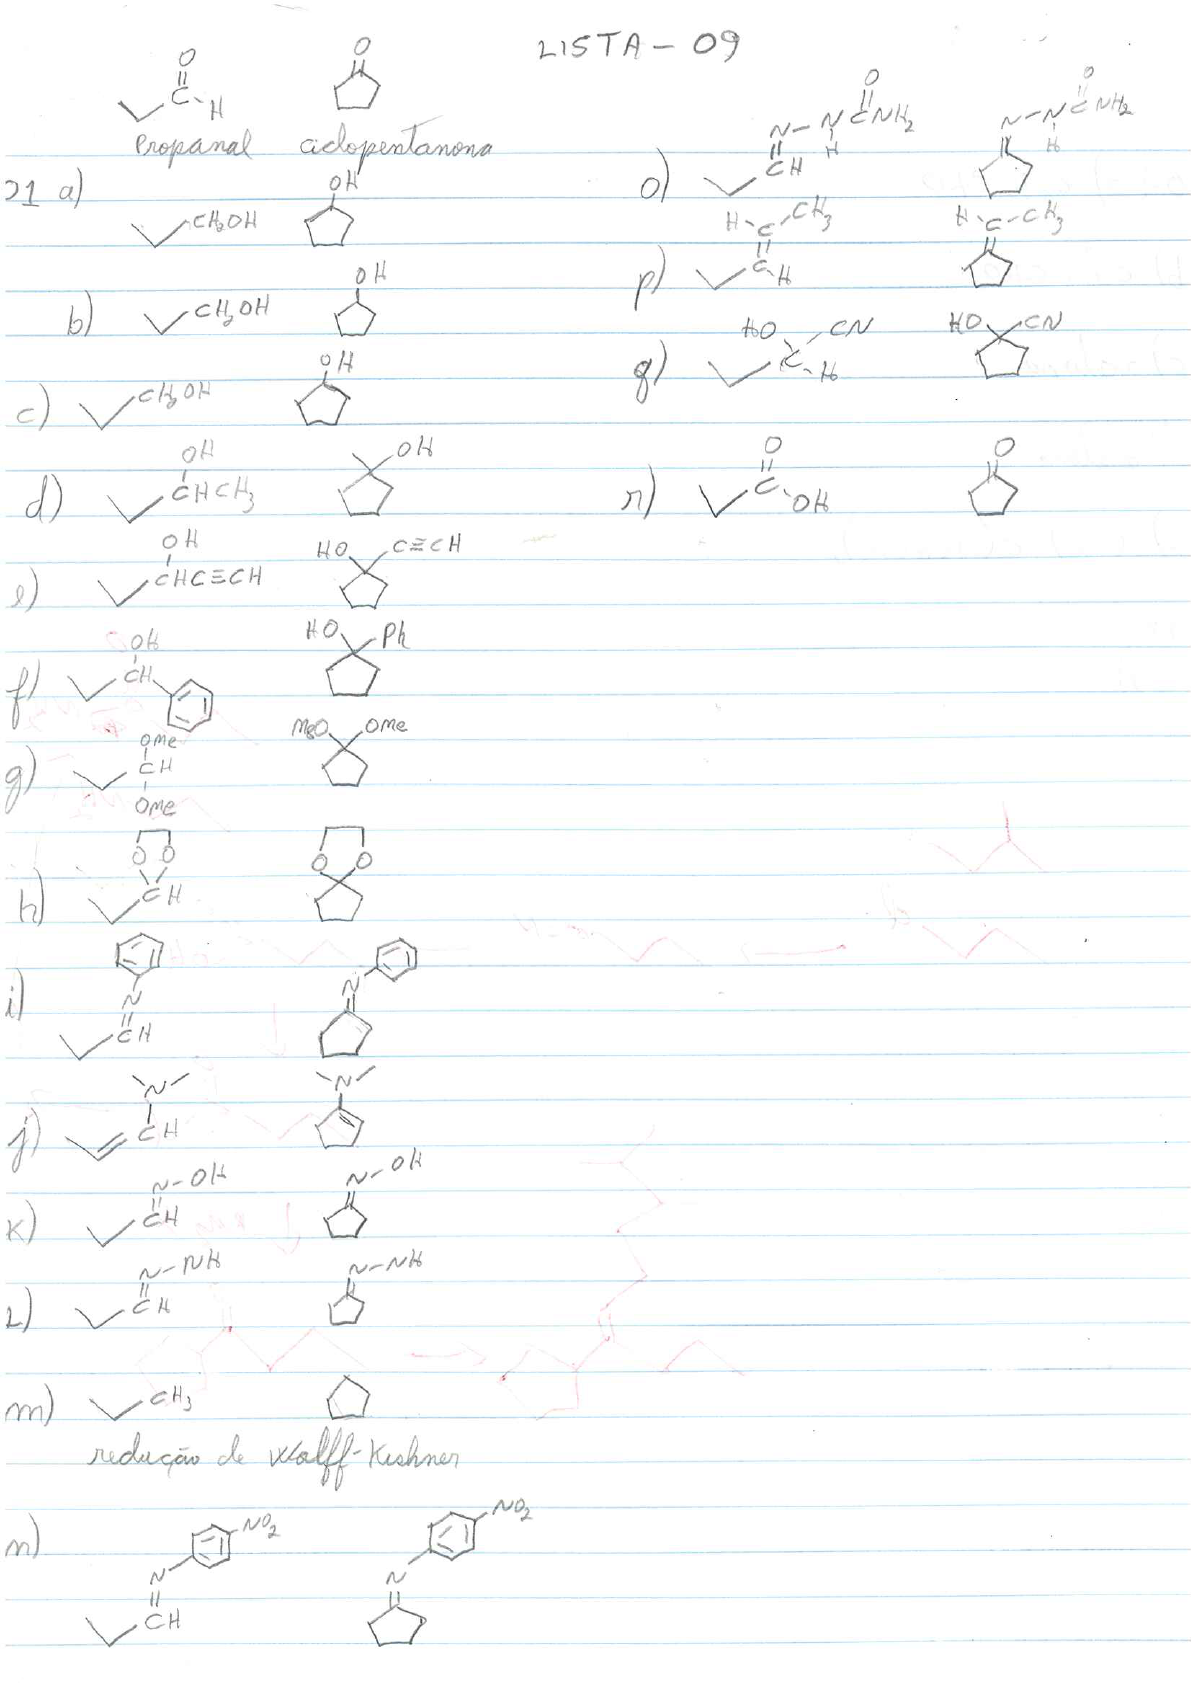 LISTA - 09
O
C-H
O
Propanal ciclopentanona
21 a) CH2OH OH
b) CH2OH OH
c) CH2OH OH
d) OH
CHCH3
OH
e) OH
CHC≡CH
HO C≡CH
f) OH
CH
HO Ph
g) OMe
CH
OMe
MeO OMe
h) O O
CH
O O
i) N
CH
N
j) N
CH
N
k) N-OH
CH
N-OH
L) N-NH
CH
N-NH
m) CH3
redução de Wolff-Kishner
n) NO2
N
CH
NO2
N
o) O
N-N C NH2
H
CH
O
N-N C NH2
H
p) H C CH3
C H
H C CH3
q) HO CN
C H
HO CN
r) O
C OH
O